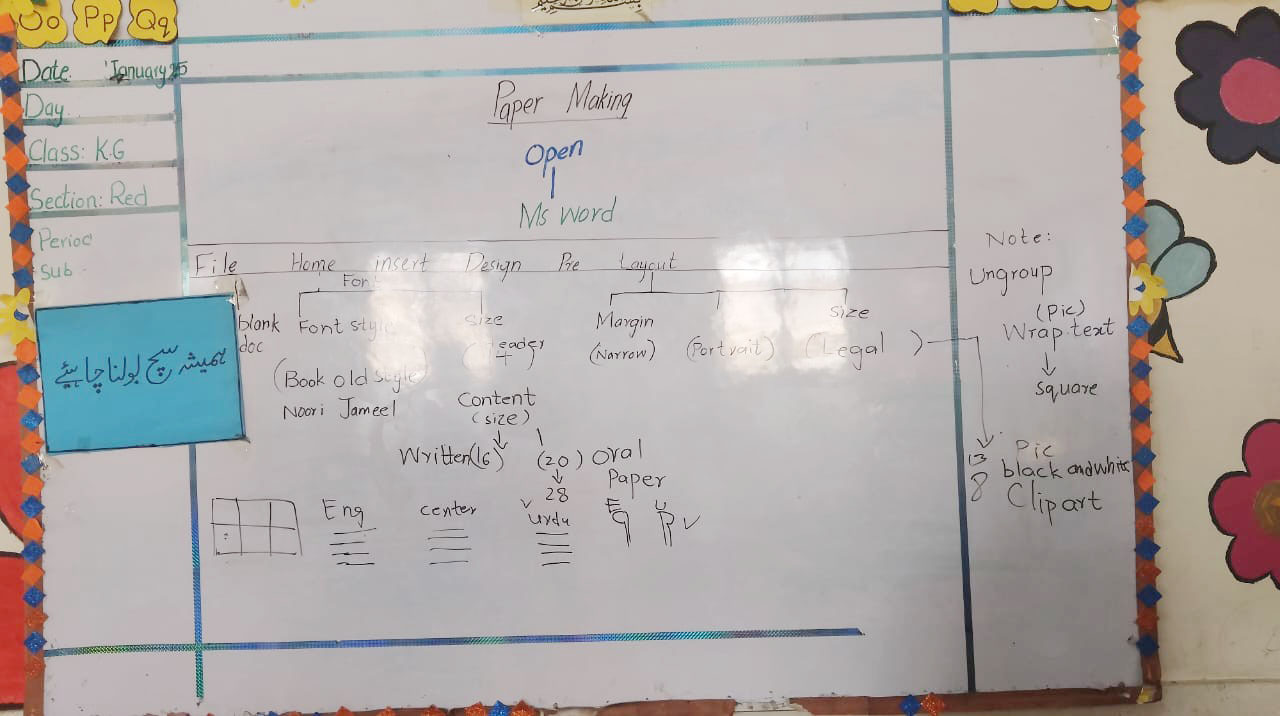 Oo Pp Qq
Date. January 25
Day
Class: K.G
Section: Red
Period
Sub
ہمیشہ سچ بولنا چاہئیے
Paper Making
Open
Ms word
File Home insert Design Layout
Font
blank doc
Font style
size
Margin
size
(Book old style)
Noori Jameel
(Narrow)
(Portrait)
(Legal)
Content
(size)
Written(16) (20) oral
28
Paper
Eng center urdu
Note:
Ungroup
(Pic)
Wrap text
square
13
8
Pic
black and white
Clipart